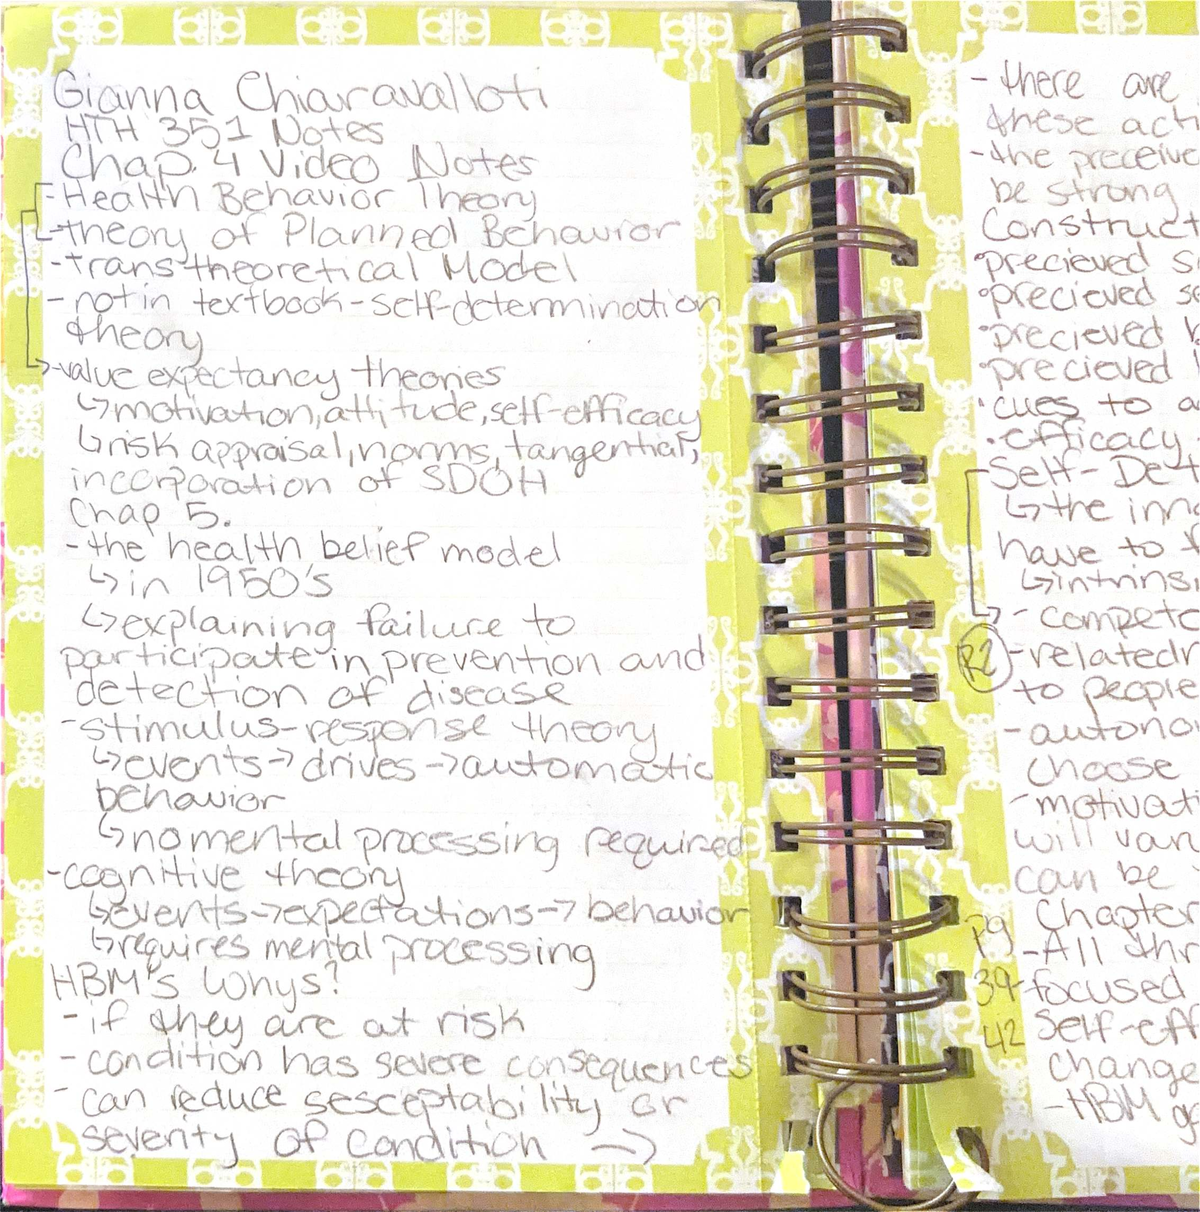 Gianna Chiaravalloti
HTH 351 Notes
Chap. 4 Video Notes
-Health Behavior Theory
-theory of Planned Behavior
-trans theoretical Model
-not in textbook-self-determination
theory
-value expectancy theories
↳motivation,attitude,self-efficacy
↳risk appraisal,norms,tangential,
incorporation of SDOH
Chap 5.
-the health belief model
↳in 1950's
↳explaining failure to
participate in prevention and
detection of disease
-stimulus-response theory
↳events→drives→automatic
behavior
↳no mental processing required
-cognitive theory
↳events→expectations→behavior
↳requires mental processing
HBM's Whys?
-if they are at risk
-condition has severe consequences
-can reduce sesceptability or
severity of condition →
-there are
these act
-the preceive
be strong
Construct
•precieved s
•precieved s
•precieved
•precieved
•cues to a
•efficacy
Self-Det
↳the inn
have to
↳intrinsi
-compete
R2 -related
to people
-autono
choose
-motivati
will van
can be
Chapter
Pg -All thr
39- focused
42 Self-eff
change
-HBM